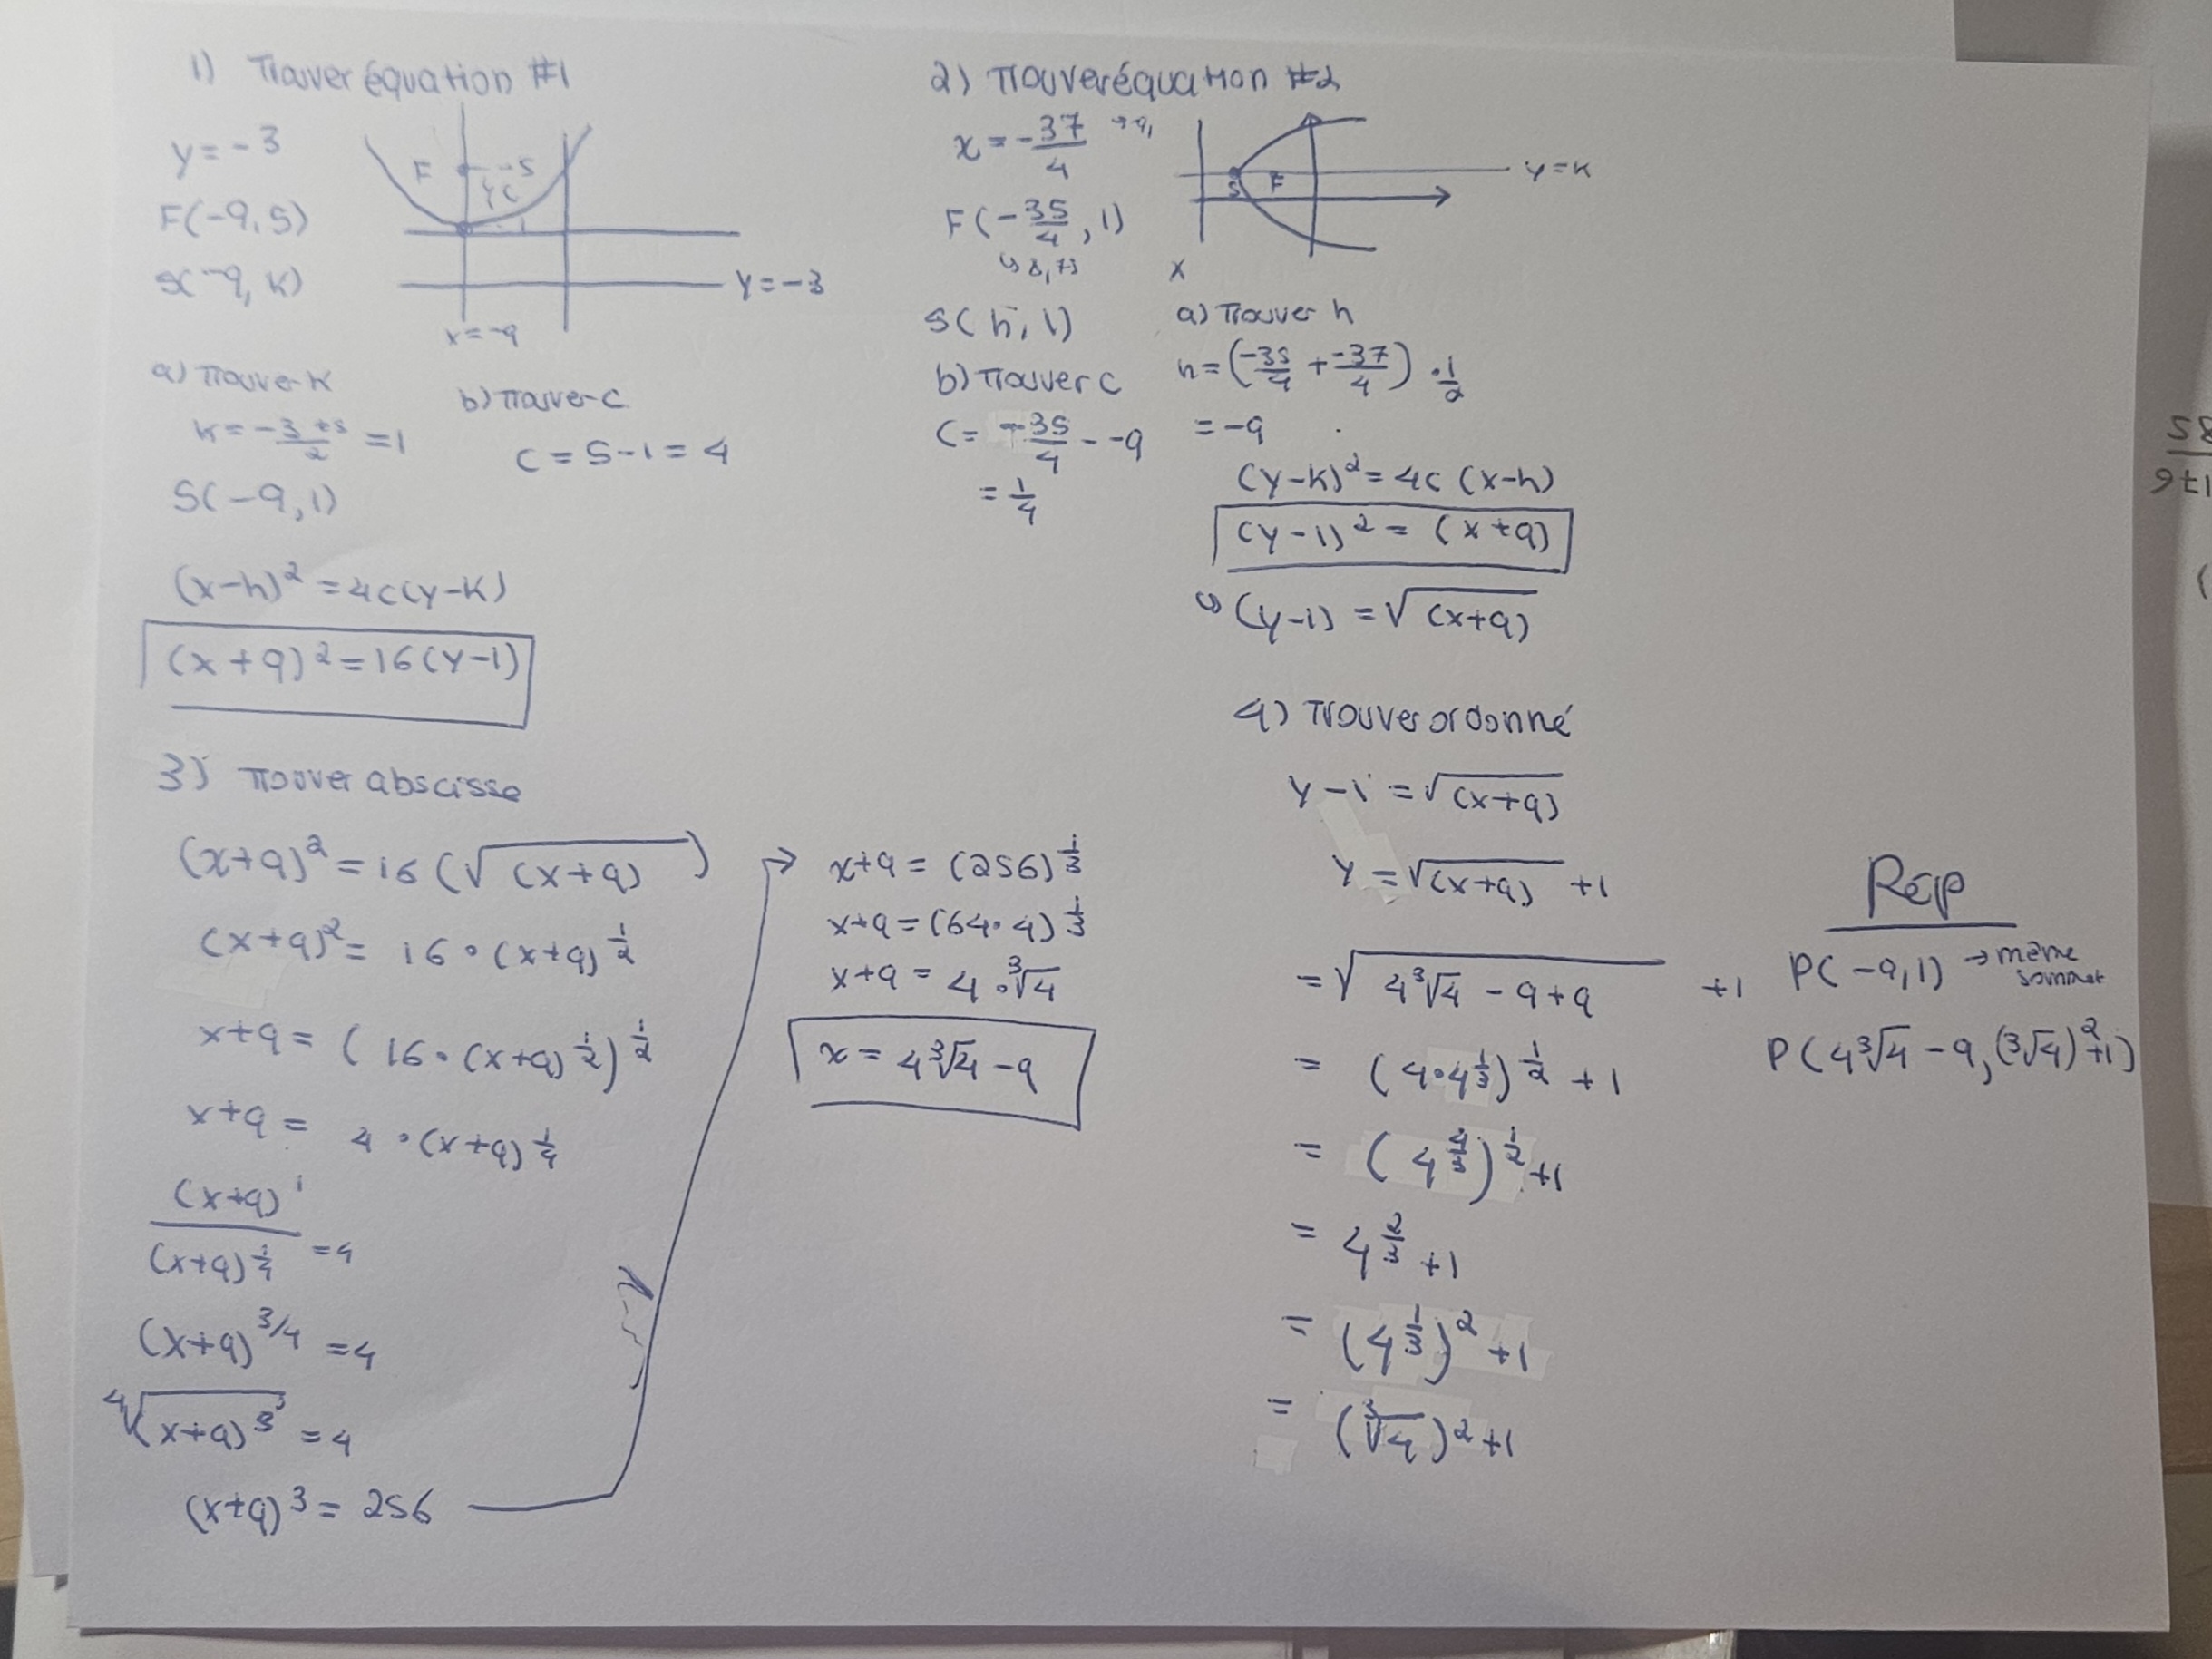 1) Trouver équation #1
y = -3
F(-9,5)
S(-9, K)
F
5
4c
1
y = -3
x = -9
a) Trouver K
K = -3 + 5 / 2 = 1
S(-9, 1)
b) Trouver C
C = 5 - 1 = 4
(x-h)² = 4c(y-K)
(x+9)² = 16(y-1)
2) Trouver équation #2
x = -37/4
F(-35/4, 1)
S(h, 1)
S
F
y = K
X
a) Trouver h
h = (-35/4 + -37/4) · 1/2
= -9
b) Trouver C
C = -35/4 - -9
= 1/4
(y-K)² = 4c (x-h)
(y-1)² = (x+9)
↳ (y-1) = √(x+9)
3) Trouver abscisse
(x+9)² = 16(√(x+9))
(x+9)² = 16 · (x+9)^1/2
x+9 = (16 · (x+9)^1/2)^1/2
x+9 = 4 · (x+9)^1/4
(x+9)^1 / (x+9)^1/4 = 4
(x+9)^3/4 = 4
⁴√(x+9)³ = 4
(x+9)³ = 256
→ x+9 = (256)^1/3
x+9 = (64·4)^1/3
x+9 = 4·³√4
x = 4³√4 - 9
4) Trouver ordonné
y - 1 = √(x+9)
y = √(x+9) + 1
= √(4³√4 - 9 + 9) + 1
= (4·4^1/3)^1/2 + 1
= (4^4/3)^1/2 + 1
= 4^2/3 + 1
= (4^1/3)² + 1
= (³√4)² + 1
Rép
P(-9,1) → même
sommet
P(4³√4 - 9, (³√4)² + 1)